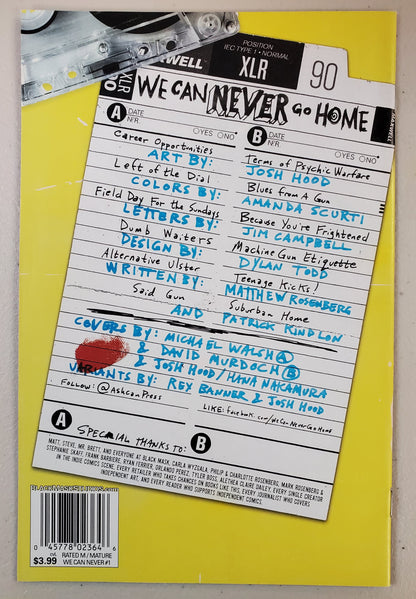 MAXWELL
POSITION
IEC TYPE I • NORMAL
XLR
90
XLR
WE CAN NEVER GO HOME
MAXWELL
A DATE
N/R.
○YES ○NO
B DATE
N/R.
○YES ○NO
Career Opportunities
Terms of Psychic Warfare
ART BY:
JOSH HOOD
Left of the Dial
Blues from A Gun
COLORS BY:
AMANDA SCURTI
Field Day For the Sundays
Because You're Frightened
LETTERS BY:
JIM CAMPBELL
Dumb Waiters
Machine Gun Etiquette
DESIGN BY:
DYLAN TODD
Alternative Ulster
Teenage Kicks!
WRITTEN BY:
MATTHEW ROSENBERG
Said Gun
Suburban Home
AND
PATRICK KINDLON
COVERS BY: MICHAEL WALSH A
& DAVID MURDOCH B
& JOSH HOOD / HANA NAKAMURA
VARIANTS BY: REX BANNER & JOSH HOOD
FOLLOW: @AshcanPress
LIKE: facebook.com/WeCanNeverGoHome
A
B
SPECIAL THANKS TO:
MATT, STEVE, MR. BRETT, AND EVERYONE AT BLACK MASK, CARLA WYZGALA, PHILIP & CHARLOTTE ROSENBERG, MARK ROSENBERG &
STEPHANIE SKAFF, FRANK BARBIERE, RYAN FERRIER, ORLANDO PEREZ, TYLER BOSS, ALETHEA CLAIRE DAILEY, EVERY SINGLE CREATOR
IN THE INDIE COMICS SCENE, EVERY RETAILER WHO TAKES CHANCES ON BOOKS LIKE THIS, EVERY JOURNALIST WHO COVERS
INDEPENDENT ART, AND EVERY READER WHO SUPPORTS INDEPENDENT COMICS.
BLACKMASKSTUDIOS.com
0 45778 02364 6
$3.99
RATED M / MATURE
WE CAN NEVER #1